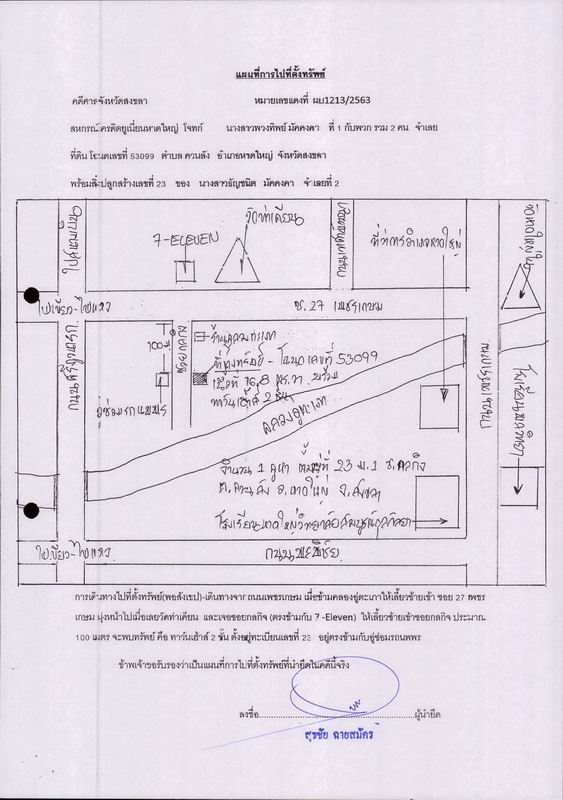 แผนที่การไปที่ตั้งทรัพย์
คดีศาลจังหวัดสงขลา หมายเลขแดงที่ ผบ1213/2563
สหกรณ์เครดิตยูเนี่ยนหาดใหญ่ โจทก์ นางสาวพวงทิพย์ มัคคงคา ที่ 1 กับพวก รวม 2 คน จำเลย
ที่ดิน โฉนดเลขที่ 53099 ตำบล ควนลัง อำเภอหาดใหญ่ จังหวัดสงขลา
พร้อมสิ่งปลูกสร้างเลขที่ 23 ของ นางสาวธัญชนิต มัคคงคา จำเลยที่ 2
วัดท่าเคียน
7-ELEVEN
ที่ว่าการอำเภอหาดใหญ่
วัดหาดใหญ่ใน
ไฟเขียว-ไฟแดง
ซ. 27 เพชรเกษม
100 ม.
ซอยกลกิจ
ที่ตั้งทรัพย์ - โฉนดเลขที่ 53099
เนื้อที่ 16.8 ตร.วา. พร้อม
ทาวน์เฮ้าส์ 2 ชั้น
อู่ซ่อมรถนพพร
คลองอู่ตะเภา
ถนนเพชรเกษม
จำนวน 1 คูหา ตั้งอยู่ที่ 23 ม.1 ซ.กลกิจ
ต.ควนลัง อ.หาดใหญ่ จ.สงขลา
โรงเรียนหาดใหญ่วิทยาลัยสมบูรณ์กุลกันยา
ไฟเขียว-ไฟแดง
การเดินทางไปที่ตั้งทรัพย์(พอสังเขป)-เดินทางจาก ถนนเพชรเกษม เมื่อข้ามคลองอู่ตะเภาให้เลี้ยวซ้ายเข้า ซอย 27 เพชร
เกษม มุ่งหน้าไปเมื่อเลยวัดท่าเคียน และเจอซอยกลกิจ (ตรงข้ามกับ 7 -Eleven) ให้เลี้ยวซ้ายเข้าซอยกลกิจ ประมาณ
100 เมตร จะพบทรัพย์ คือ ทาวน์เฮ้าส์ 2 ชั้น ตั้งอยู่ทะเบียนเลขที่ 23 อยู่ตรงข้ามกับอู่ซ่อมรถนพพร
ข้าพเจ้าขอรับรองว่าเป็นแผนที่การไปที่ตั้งทรัพย์ที่นำยึดในคดีนี้จริง
ลงชื่อ...............................................ผู้นำยึด
สุรชัย ฉายสมัคร์